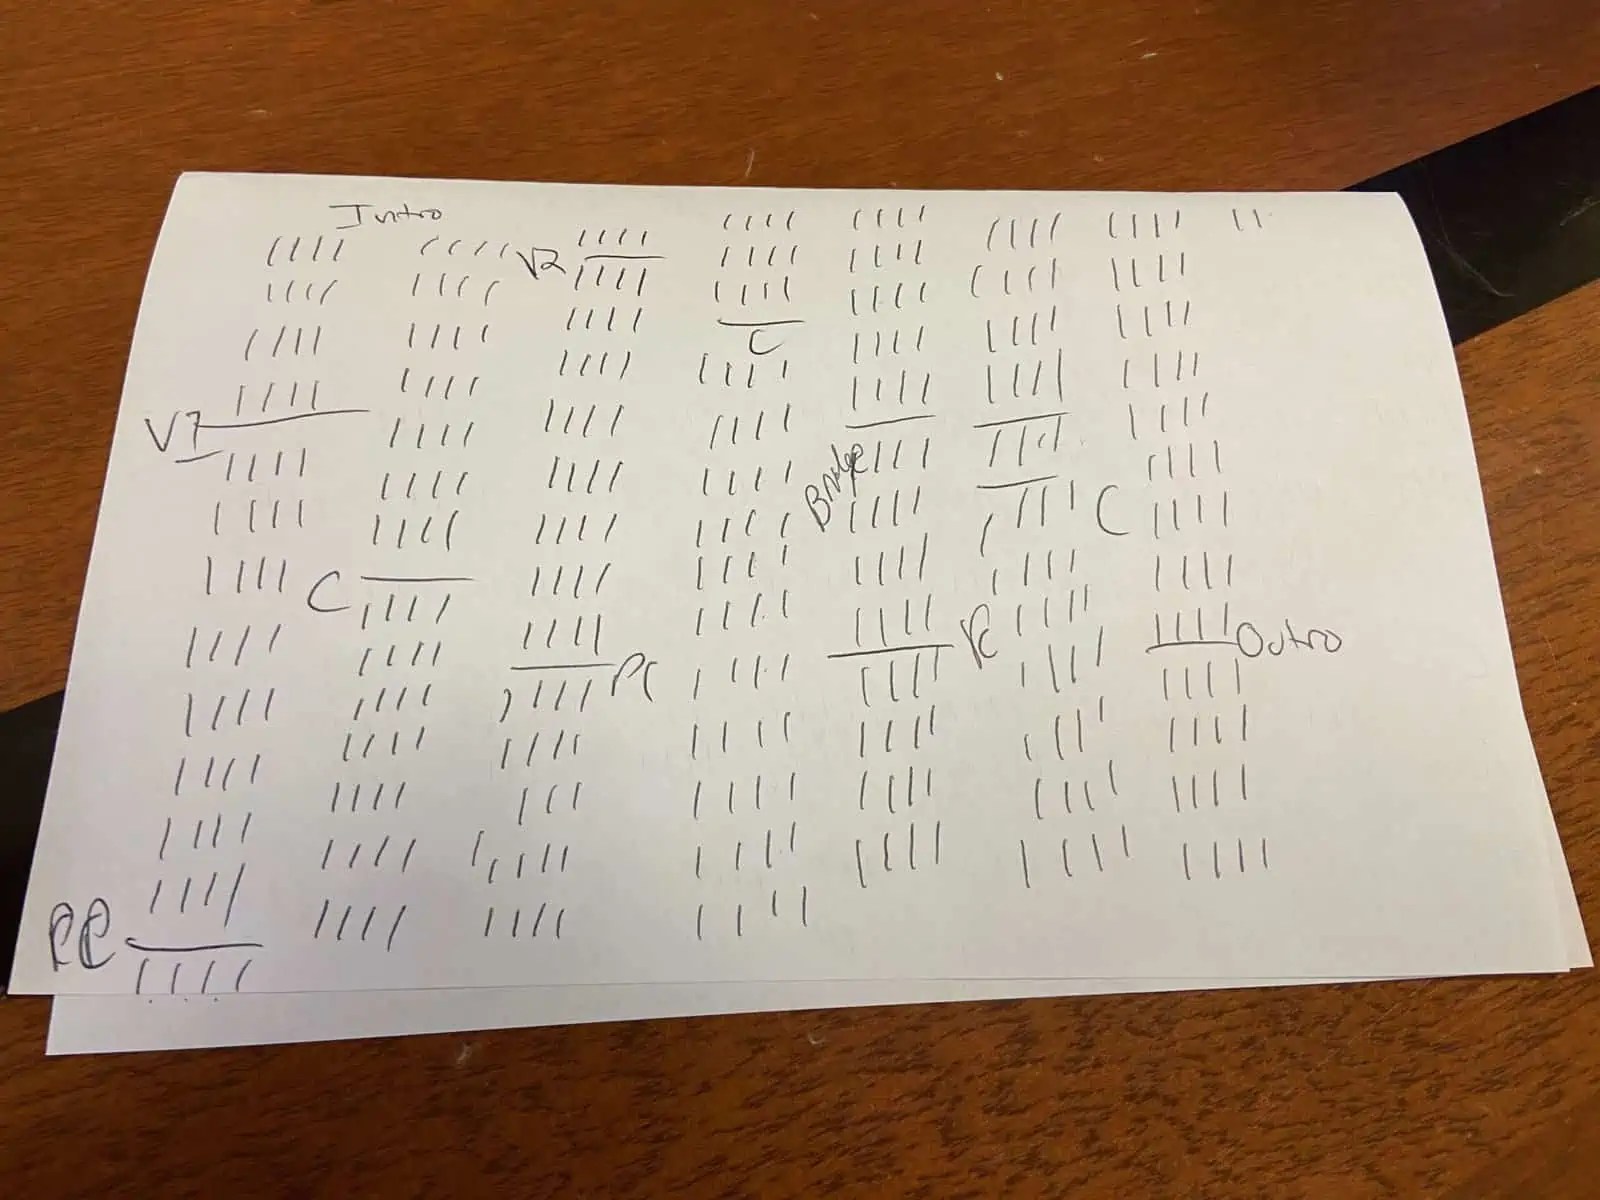 Intro
V1
PC
C
V2
PC
C
Bridge
PC
C
Outro